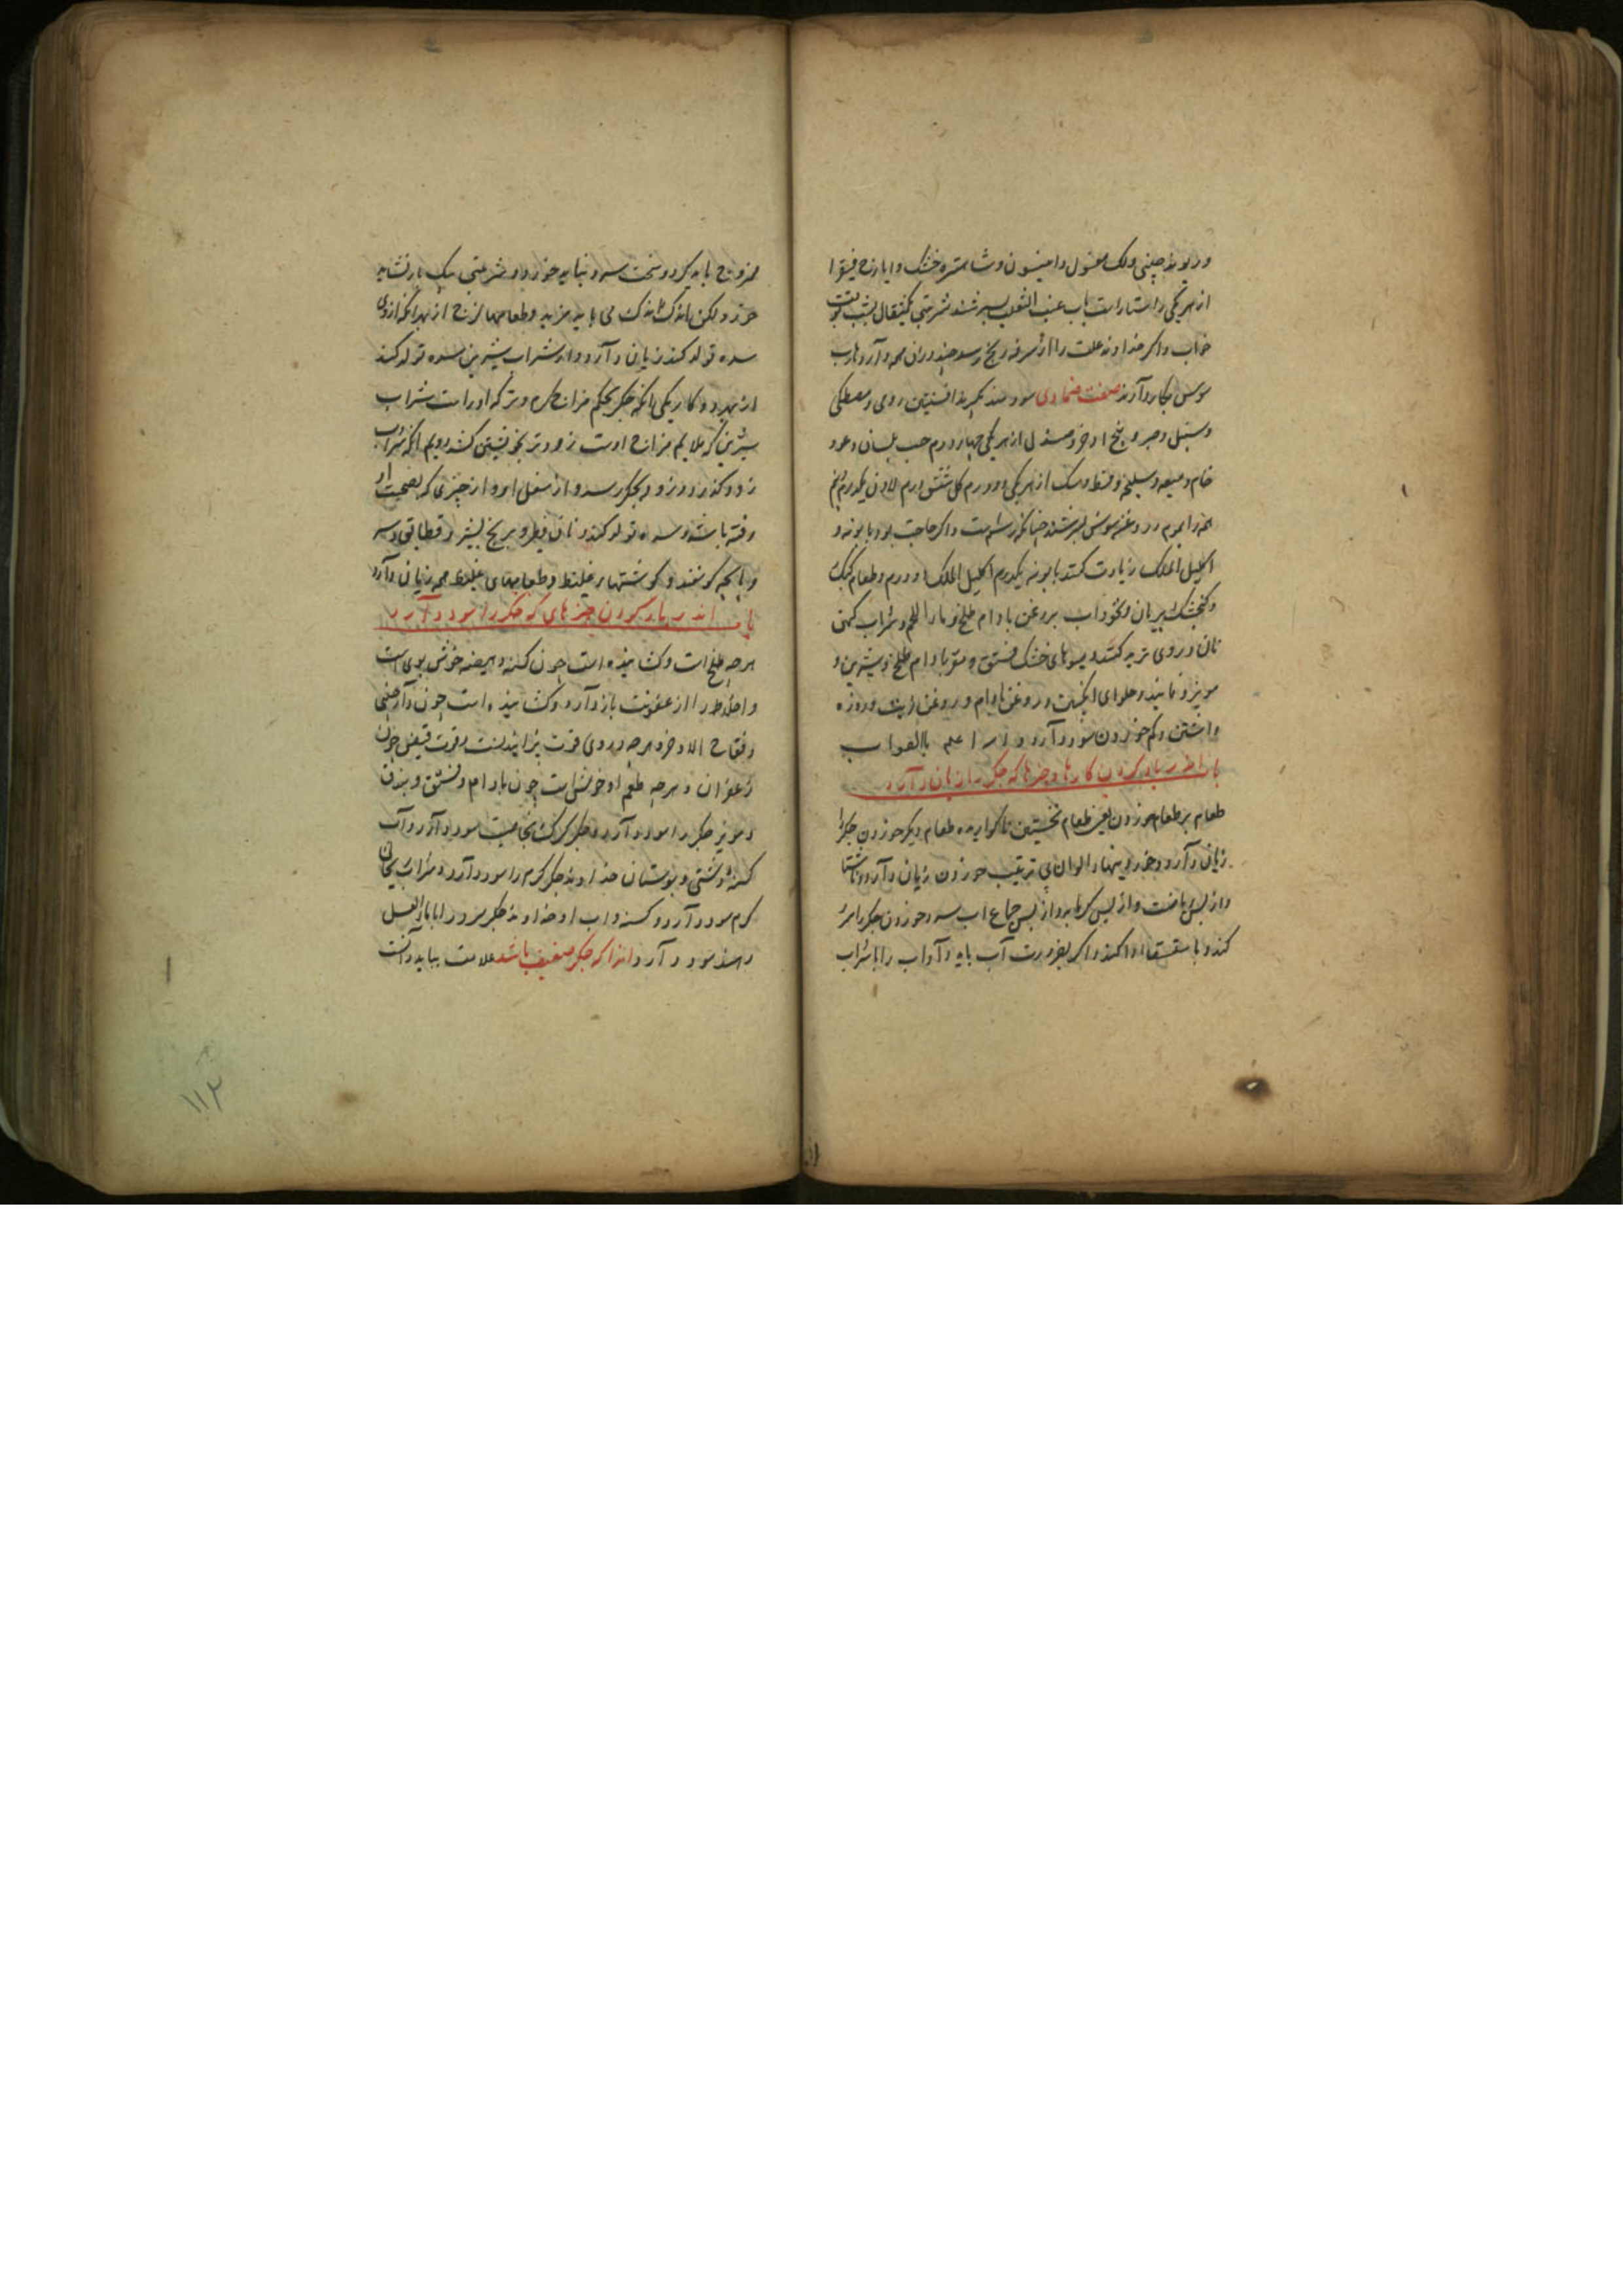 وریوند چینی ولک مغسول وانیسون وشاهتره خشک وایارج فیقرا
از هریکی راستاراست باب عنب الثعلب بسرشند شربتی یکمثقال بشب بوقت
خواب واکر خداوند علت را از سرفه رنج رسد چیزی دران همه آرد وارب
سوس بکار دارند صفت ضمادی سودمند بکیرند افسنتین رومی ومصطکی
وسنبل وصبر و بیخ اذخر وصندل از هریکی چهار درم حب بلسان وعود
خام ومیعه وسلیخه وقسط ومشک از هریکی دو درم کل شش درم لادن یکدرم ونیم
همه را بموم وروغن سوسن بسرشند چنانکه رسم است واکر حاجت بود بابونه و
اکلیل الملک زیادت کنند بابونه یکدرم اکلیل الملک دو درم وطعام کبک
وکنجشک بریان ونخوداب بروغن بادام تلخ وماء اللحم وشراب کهن
نان دروی ترید کنند ومیوهای خشک فستق ومغز بادام تلخ وشیرین و
مویز وفانیذ وحلوای انکبین وروغن بادام وروغن زیت وروزه
داشتن وکم خوردن سود دارد والله اعلم بالصواب
باب اندر یاد کردن کارها وچیزها که جکر را زیان دارد
طعام بر طعام خوردن یعنی طعام نخستین ناکواریده طعام دیکر خوردن جکر را
زیان دارد وخوردنیها والوان بی ترتیب خوردن زیان دارد وناشتا
واز پس ریاضت واز پس کرمابه واز پس جماع اب سرد خوردن جکر را سرد
کند وباستسقا ادا کند واکر بضرورت آب باید داد اب را با شراب
ممزوج باید کرد وسخت سرد نباید خورد وشربتی بیک بار نشاید
خورد ولکن اندک اندک می باید مزید وطعامهاء لزج از بهر انکه ازوی
سده تولد کند زیان دارد واز شراب شیرین سده تولد کند
از بهر دو کار یکی انکه جکر بحکم مزاج کرم وتر که اوراست شراب
شیرین که ملایم مزاج اوست زودتر بخویشتن کشد ودوم انکه شراب
زود کذرد وزود بجکر رسد واز سفل او واز چیزی که بصحبت او
رفته باشد سده تولد کند ونان فطیر وبرنج بشیر وقطایف وسر
وپایچه کوسفند وکوشتهاء غلیظ وطعامهای غلیظ همه زیان دارد
باب اندر یاد کردن چیزهای که جکر را سود دارد
هرچه تلخ است وکشاینده است چون کسنه وهرچه خوش بوی است
واخلاط را از عفونت باز دارد وکشاینده است چون دارچینی
وفقاح الاذخر وهرچه دروی قوت بزایند است وقوت قبض چون
زعفران وهرچه طعم او خوش است چون بادام وفستق وبندق
ومویز جکر را سود دارد وجکر کرک بخاصیت سود دارد وآب
کسنه دشتی وبوستان خداوند جکر کرم را سود دارد وشراب ریحانی
کرم سود دارد وکسنه واب او خداوند جکر سرد را با ماء العسل
دهند سود دارد وانرا که جکر ضعیف باشد علامت بباید دانست
۱۱۲